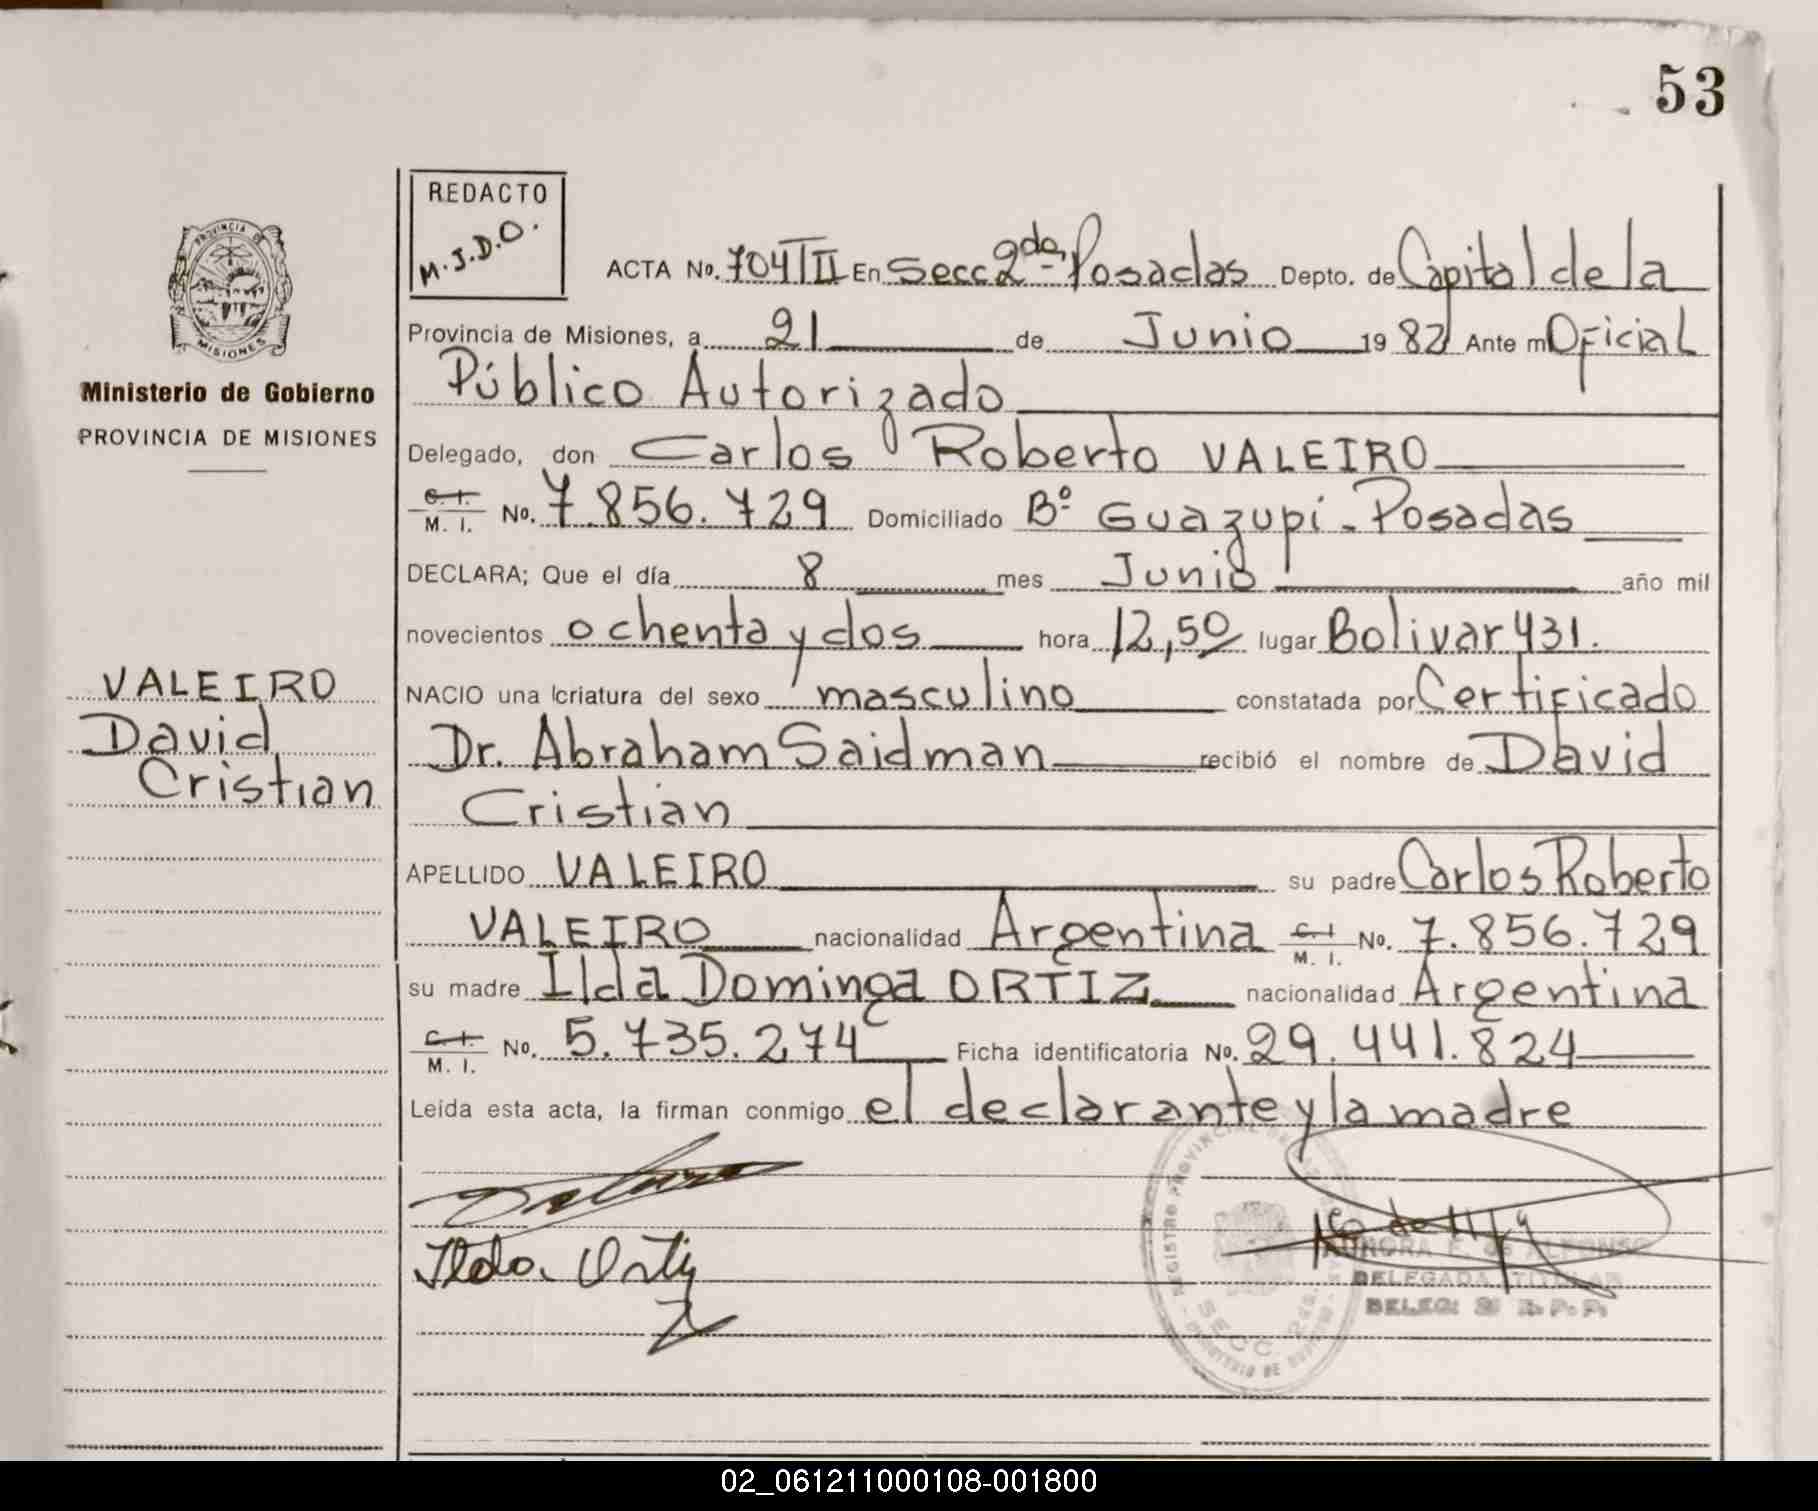 53
REDACTO
M.J.D.O.
PROVINCIA DE
MISIONES
Ministerio de Gobierno
PROVINCIA DE MISIONES
VALEIRO
David
Cristian
ACTA No. 704TII En Secc 2da Posadas Depto. de Capital de la
Provincia de Misiones, a 21 de Junio 1982 Ante m Oficial
Público Autorizado
Delegado, don Carlos Roberto VALEIRO
C. I. M. I. No. 7.856.729 Domiciliado Bº Guazupi - Posadas
DECLARA; Que el día 8 mes Junio año mil
novecientos ochenta y dos hora 12,50 lugar Bolivar 431.
NACIO una criatura del sexo masculino constatada por Certificado
Dr. Abraham Saidman recibió el nombre de David
Cristian
APELLIDO VALEIRO su padre Carlos Roberto
VALEIRO nacionalidad Argentina C. I. M. I. No. 7.856.729
su madre Ilda Dominga ORTIZ nacionalidad Argentina
C. I. M. I. No. 5.735.274 Ficha identificatoria No. 29.441.824
Leida esta acta, la firman conmigo el declarante y la madre
Ilda Ortiz
AURORA E. de ALFONSO
DELEGADA TITULAR
DELEG: 2 R. P. P.
SECC 2da.
02_061211000108-001800